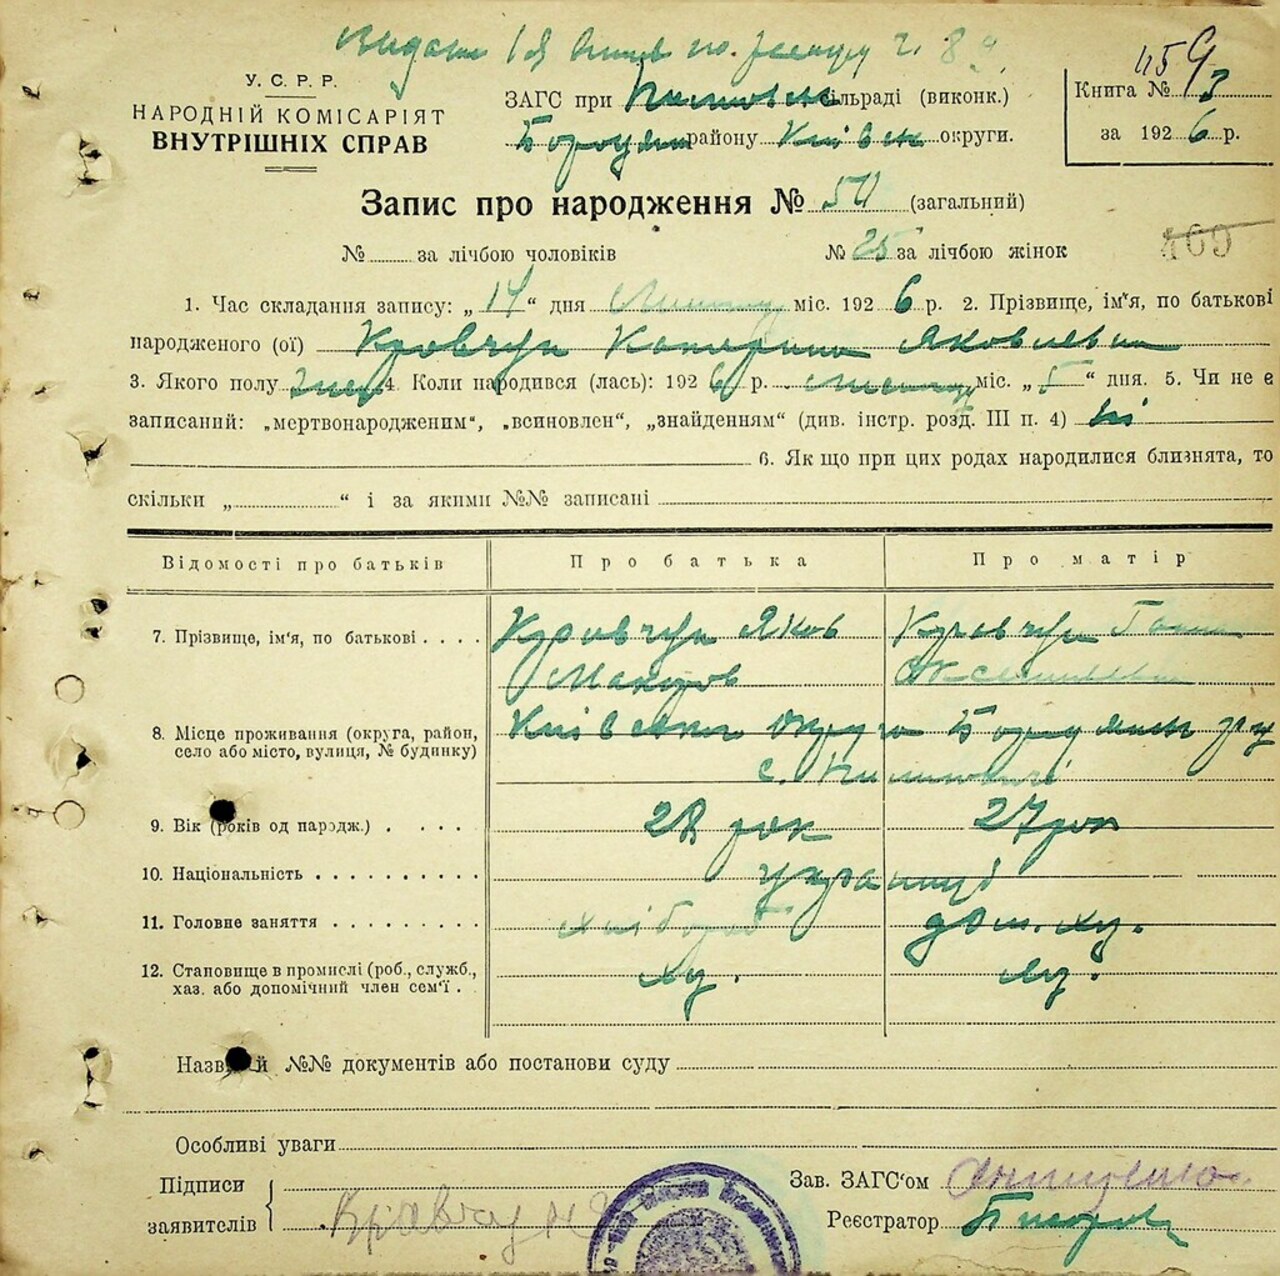 У.С.Р.Р.
НАРОДНІЙ КОМІСАРІЯТ
ВНУТРІШНІХ СПРАВ
ЗАГС при сільраді (виконк.)
Бородян району Київськ округи.
Книга №
за 1926 р.
Запис про народження № 50 (загальний)
№ за лічбою чоловіків № 25 за лічбою жінок
469
1. Час складання запису: „14“ дня міс. 1926 р. 2. Прізвище, ім‘я, по батькові
народженого (ої) Кравчук Катерина Яковлевна
3. Якого полу жен 4. Коли народився (лась): 1926 р. міс. „5“ дня. 5. Чи не є
записаний: „мертвонародженим“, „всиновлен“, „знайденням“ (див. інстр. розд. III п. 4) ні
6. Як що при цих родах народилися близнята, то
скільки „ “ і за якими №№ записані
Відомості про батьків Про батька Про матір
7. Прізвище, ім‘я, по батькові Кравчук Яков Кравчук Ганна
Макаров
8. Місце проживання (округа, район, село або місто, вулиця, № будинку) Київська округа Бородянск р-ну
с.
9. Вік (років од народж.) 28 рок 27 рок
10. Національність українці
11. Головне заняття хлібороб дом. ху.
12. Становище в промислі (роб., служб., хаз. або допомічний член сем‘ї. ху. ху.
Назви й №№ документів або постанови суду
Особливі уваги
Підписи
заявителів
Зав. ЗАГС‘ом
Реєстратор